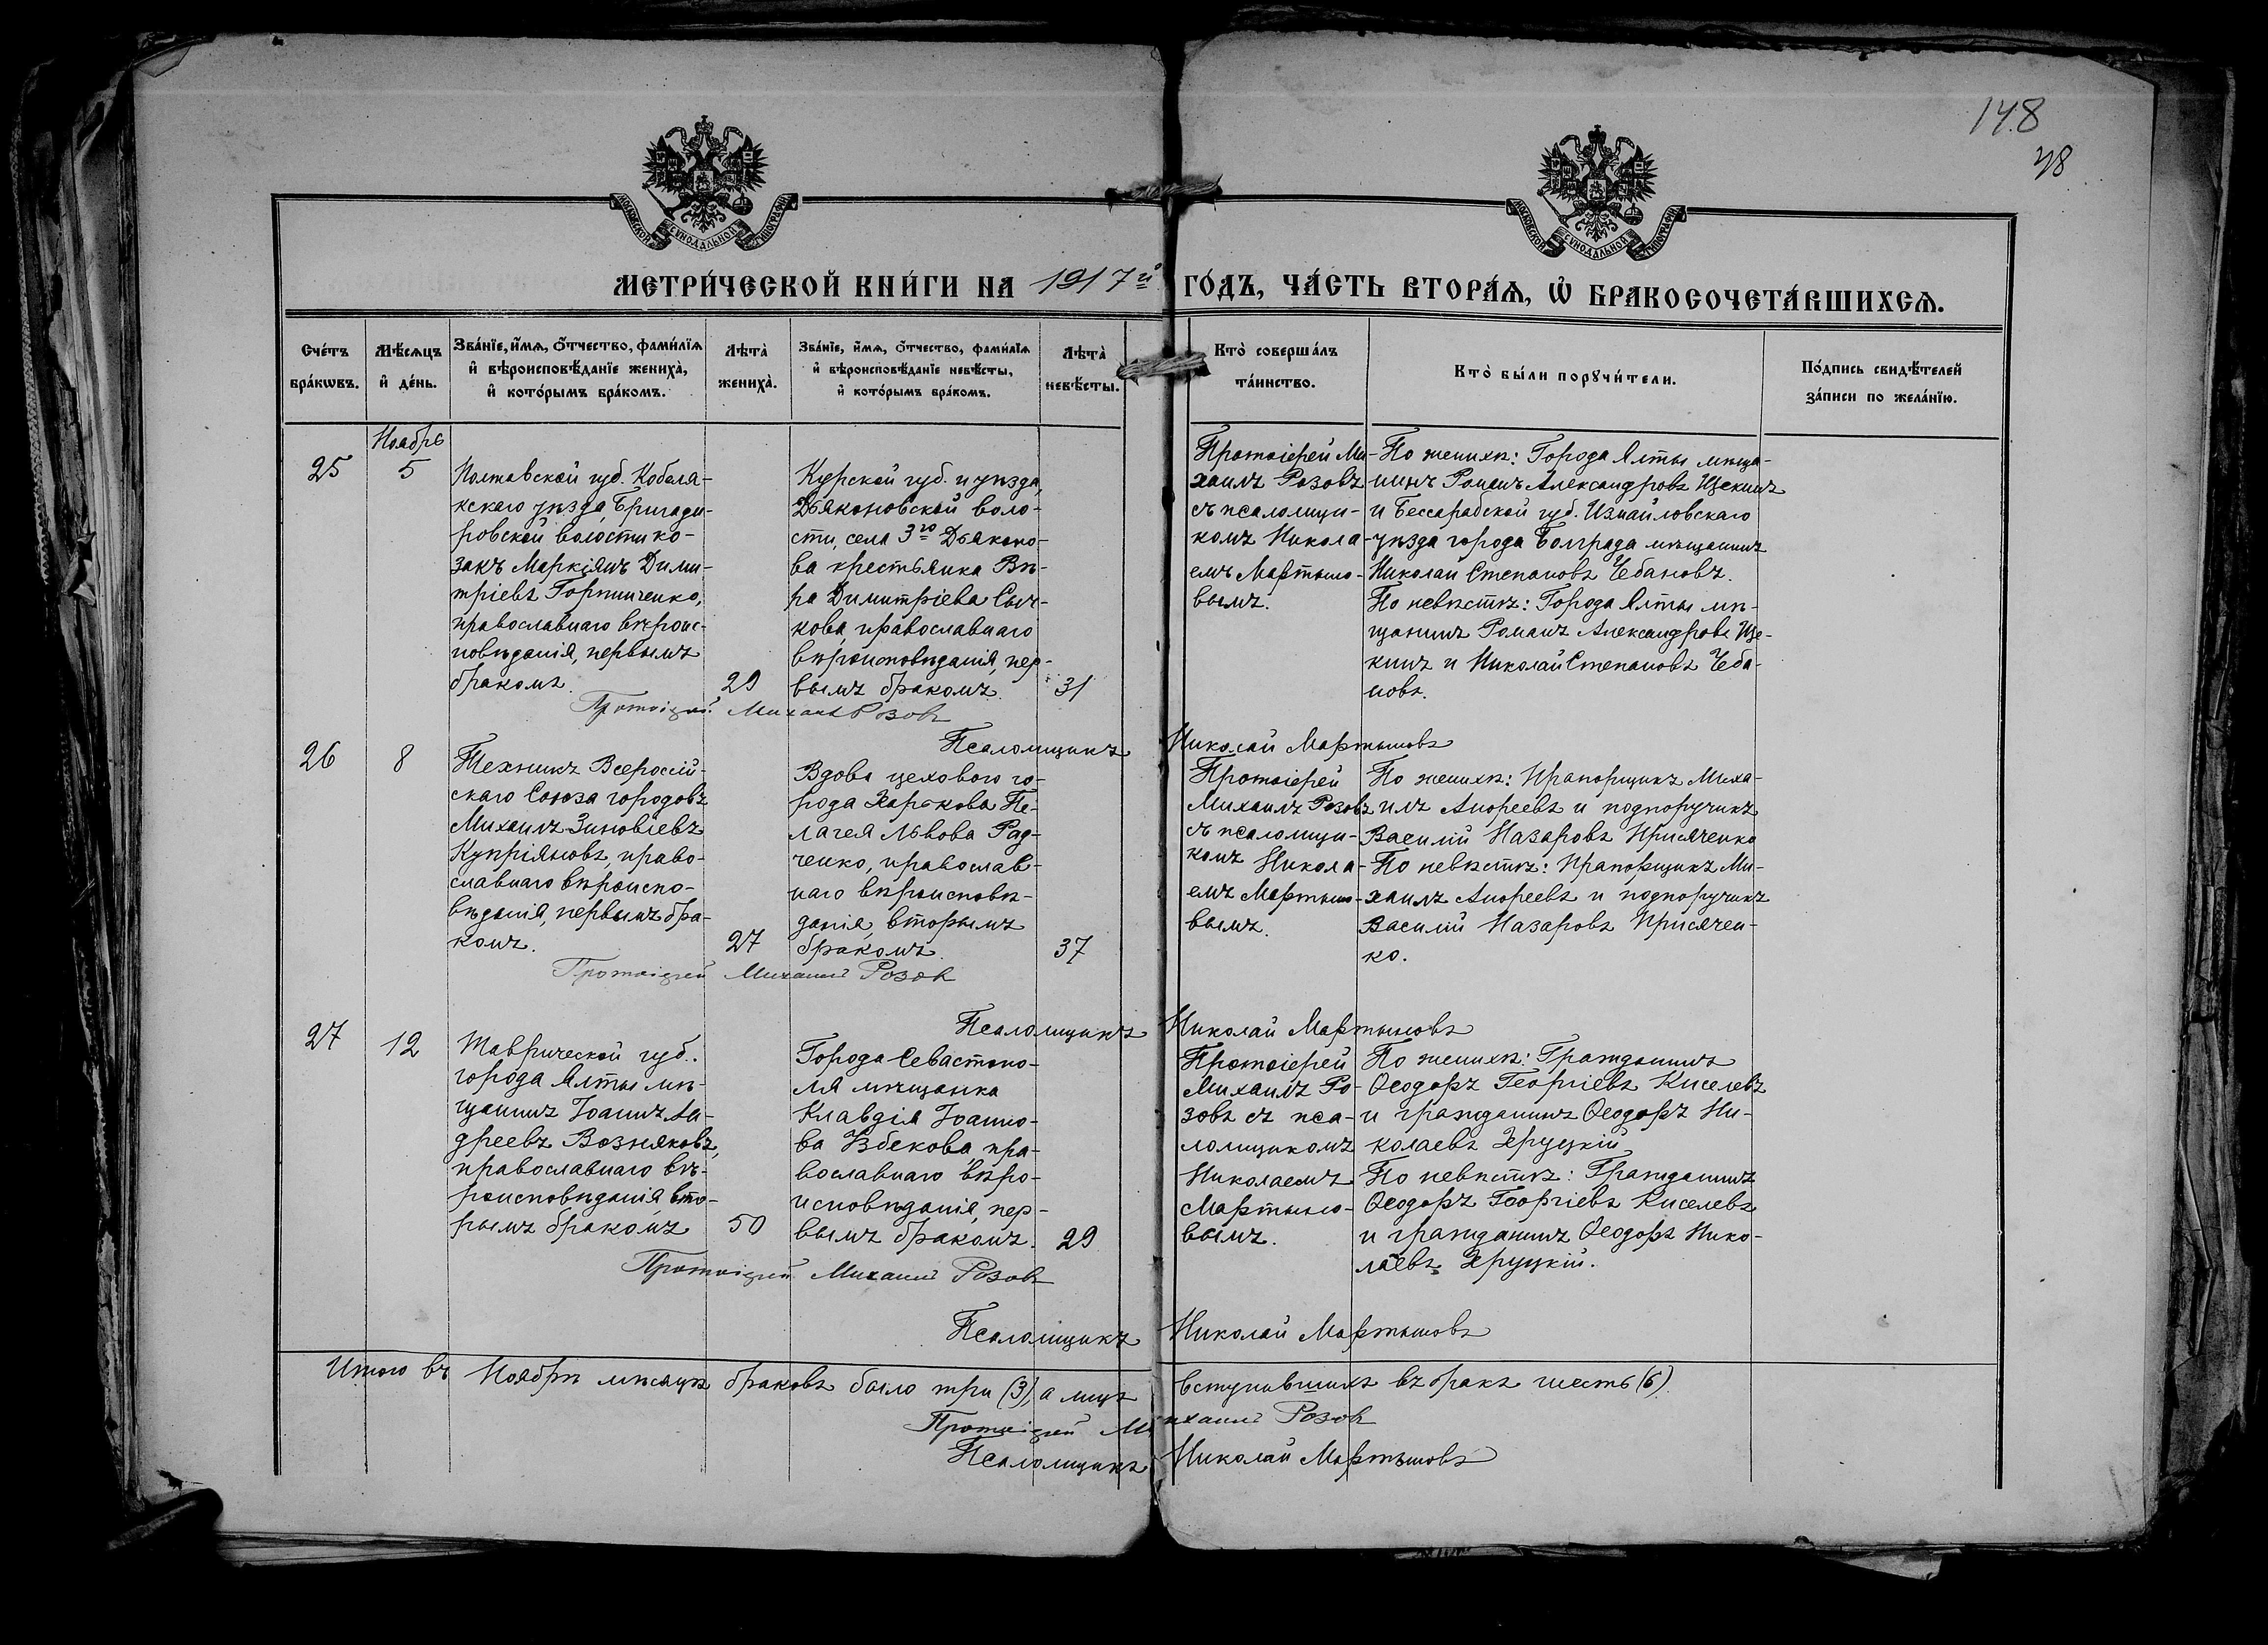 148
48
МОСКОВСКОЙ СѴНОДАЛЬНОЙ ТИПОГРАФІИ
МОСКОВСКОЙ СѴНОДАЛЬНОЙ ТИПОГРАФІИ
МЕТРИ́ЧЕСКОЙ КНИ́ГИ НА 1917й ГО́ДЪ, ЧА́СТЬ ВТОРА́Ѧ, Ѡ҆ БРАКОСОЧЕТА́ВШИХСѦ.
Сче́тъ
бра́кѡвъ.
Мѣ́сѧцъ
и҆ де́нь.
Зва́нїе, и҆́мѧ, ѻ҆́тчество, фами́лїѧ
и҆ вѣроисповѣ́данїе жениха̀,
и҆ кото́рымъ бра́комъ.
Лѣта̀
жениха̀.
Зва́нїе, и҆́мѧ, ѻ҆́тчество, фами́лїѧ
и҆ вѣроисповѣ́данїе невѣ́сты,
и҆ кото́рымъ бра́комъ.
Лѣта̀
невѣ́сты.
Кто̀ соверша́лъ
та́инство.
Кто̀ бы́ли порꙋчи́тели.
По́дпись свидѣ́телей
за́писи по жела́нїю.
Ноябрь
25
5
Полтавской губ. Кобеля-
кскаго уѣзда, Бригади-
ровской волости ко-
закъ Маркіянъ Дими-
тріевъ Горпинченко,
православнаго вѣроис-
повѣданія, первымъ
бракомъ.
29
Курской губ. и уѣзда,
Дьяконовской воло-
сти, села 3го Дьяконо-
ва крестьянка Вѣ-
ра Димитріева Сыч-
кова, православнаго
вѣроисповѣданія, пер-
вымъ бракомъ.
31
Протоіерей Ми-
хаилъ Розовъ
съ псаломщи-
комъ Никола-
емъ Мартыно-
вымъ.
По женихѣ: Города Ялты мѣща-
нинъ Романъ Александровъ Щекинъ
и Бессарабской губ. Измайловскаго
уѣзда города Болграда мѣщанинъ
Николай Степановъ Чебановъ.
По невѣстѣ: Города Ялты мѣ-
щанинъ Романъ Александровъ Ще-
кинъ и Николай Степановъ Чеба-
новъ.
Протоіерей Михаилъ Розовъ
Псаломщикъ Николай Мартыновъ
26
8
Техникъ Всероссій-
скаго Союза городовъ
Михаилъ Зиновіевъ
Купріяновъ, право-
славнаго вѣроиспо-
вѣданія, первымъ бра-
комъ.
27
Вдова цехового го-
рода Харькова Пе-
лагея Львова Рад-
ченко, православ-
наго вѣроисповѣ-
данія, вторымъ
бракомъ.
37
Протоіерей
Михаилъ Розовъ
съ псаломщи-
комъ Никола-
емъ Мартыно-
вымъ.
По женихѣ: Прапорщикъ Миха-
илъ Андреевъ и подпоручикъ
Василій Назаровъ Присяченко
По невѣстѣ: Прапорщикъ Ми-
хаилъ Андреевъ и подпоручикъ
Василій Назаровъ Присячен-
ко.
Протоіерей Михаилъ Розовъ
Псаломщикъ Николай Мартыновъ
27
12
Таврической губ.
города Ялты мѣ-
щанинъ Іоаннъ Ан-
дреевъ Возняковъ,
православнаго вѣ-
роисповѣданія, вто-
рымъ бракомъ
50
Города Севастопо-
ля мѣщанка
Клавдія Іоанно-
ва Узбекова, пра-
вославнаго вѣро-
исповѣданія, пер-
вымъ бракомъ.
29
Протоіерей
Михаилъ Ро-
зовъ съ пса-
ломщикомъ
Николаемъ
Мартыно-
вымъ.
По женихѣ: Гражданинъ
Ѳеодоръ Георгіевъ Киселевъ
и гражданинъ Ѳеодоръ Ни-
колаевъ Хруцкій
По невѣстѣ: Гражданинъ
Ѳеодоръ Георгіевъ Киселевъ
и гражданинъ Ѳеодоръ Нико-
лаевъ Хруцкій.
Протоіерей Михаилъ Розовъ
Псаломщикъ Николай Мартыновъ
Итого въ Ноябрѣ мѣсяцѣ браковъ было три (3), а лицъ вступившихъ въ бракъ шесть (6).
Протоіерей Михаилъ Розовъ
Псаломщикъ Николай Мартыновъ